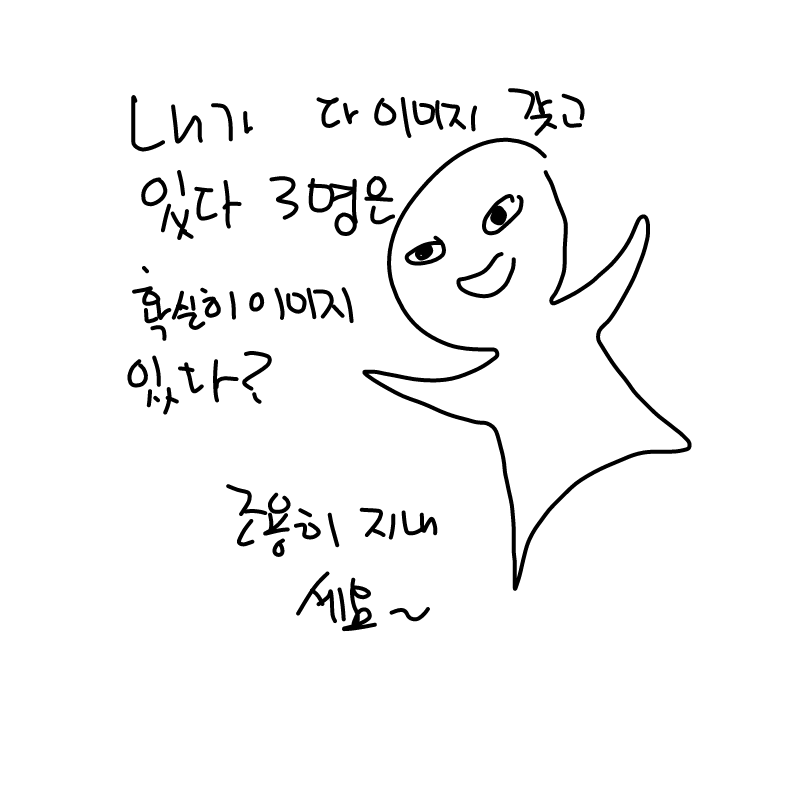 내가 다 이미지 갖고
있다 3명은
확실히 이미지
있다?
조용히 지내
세요~